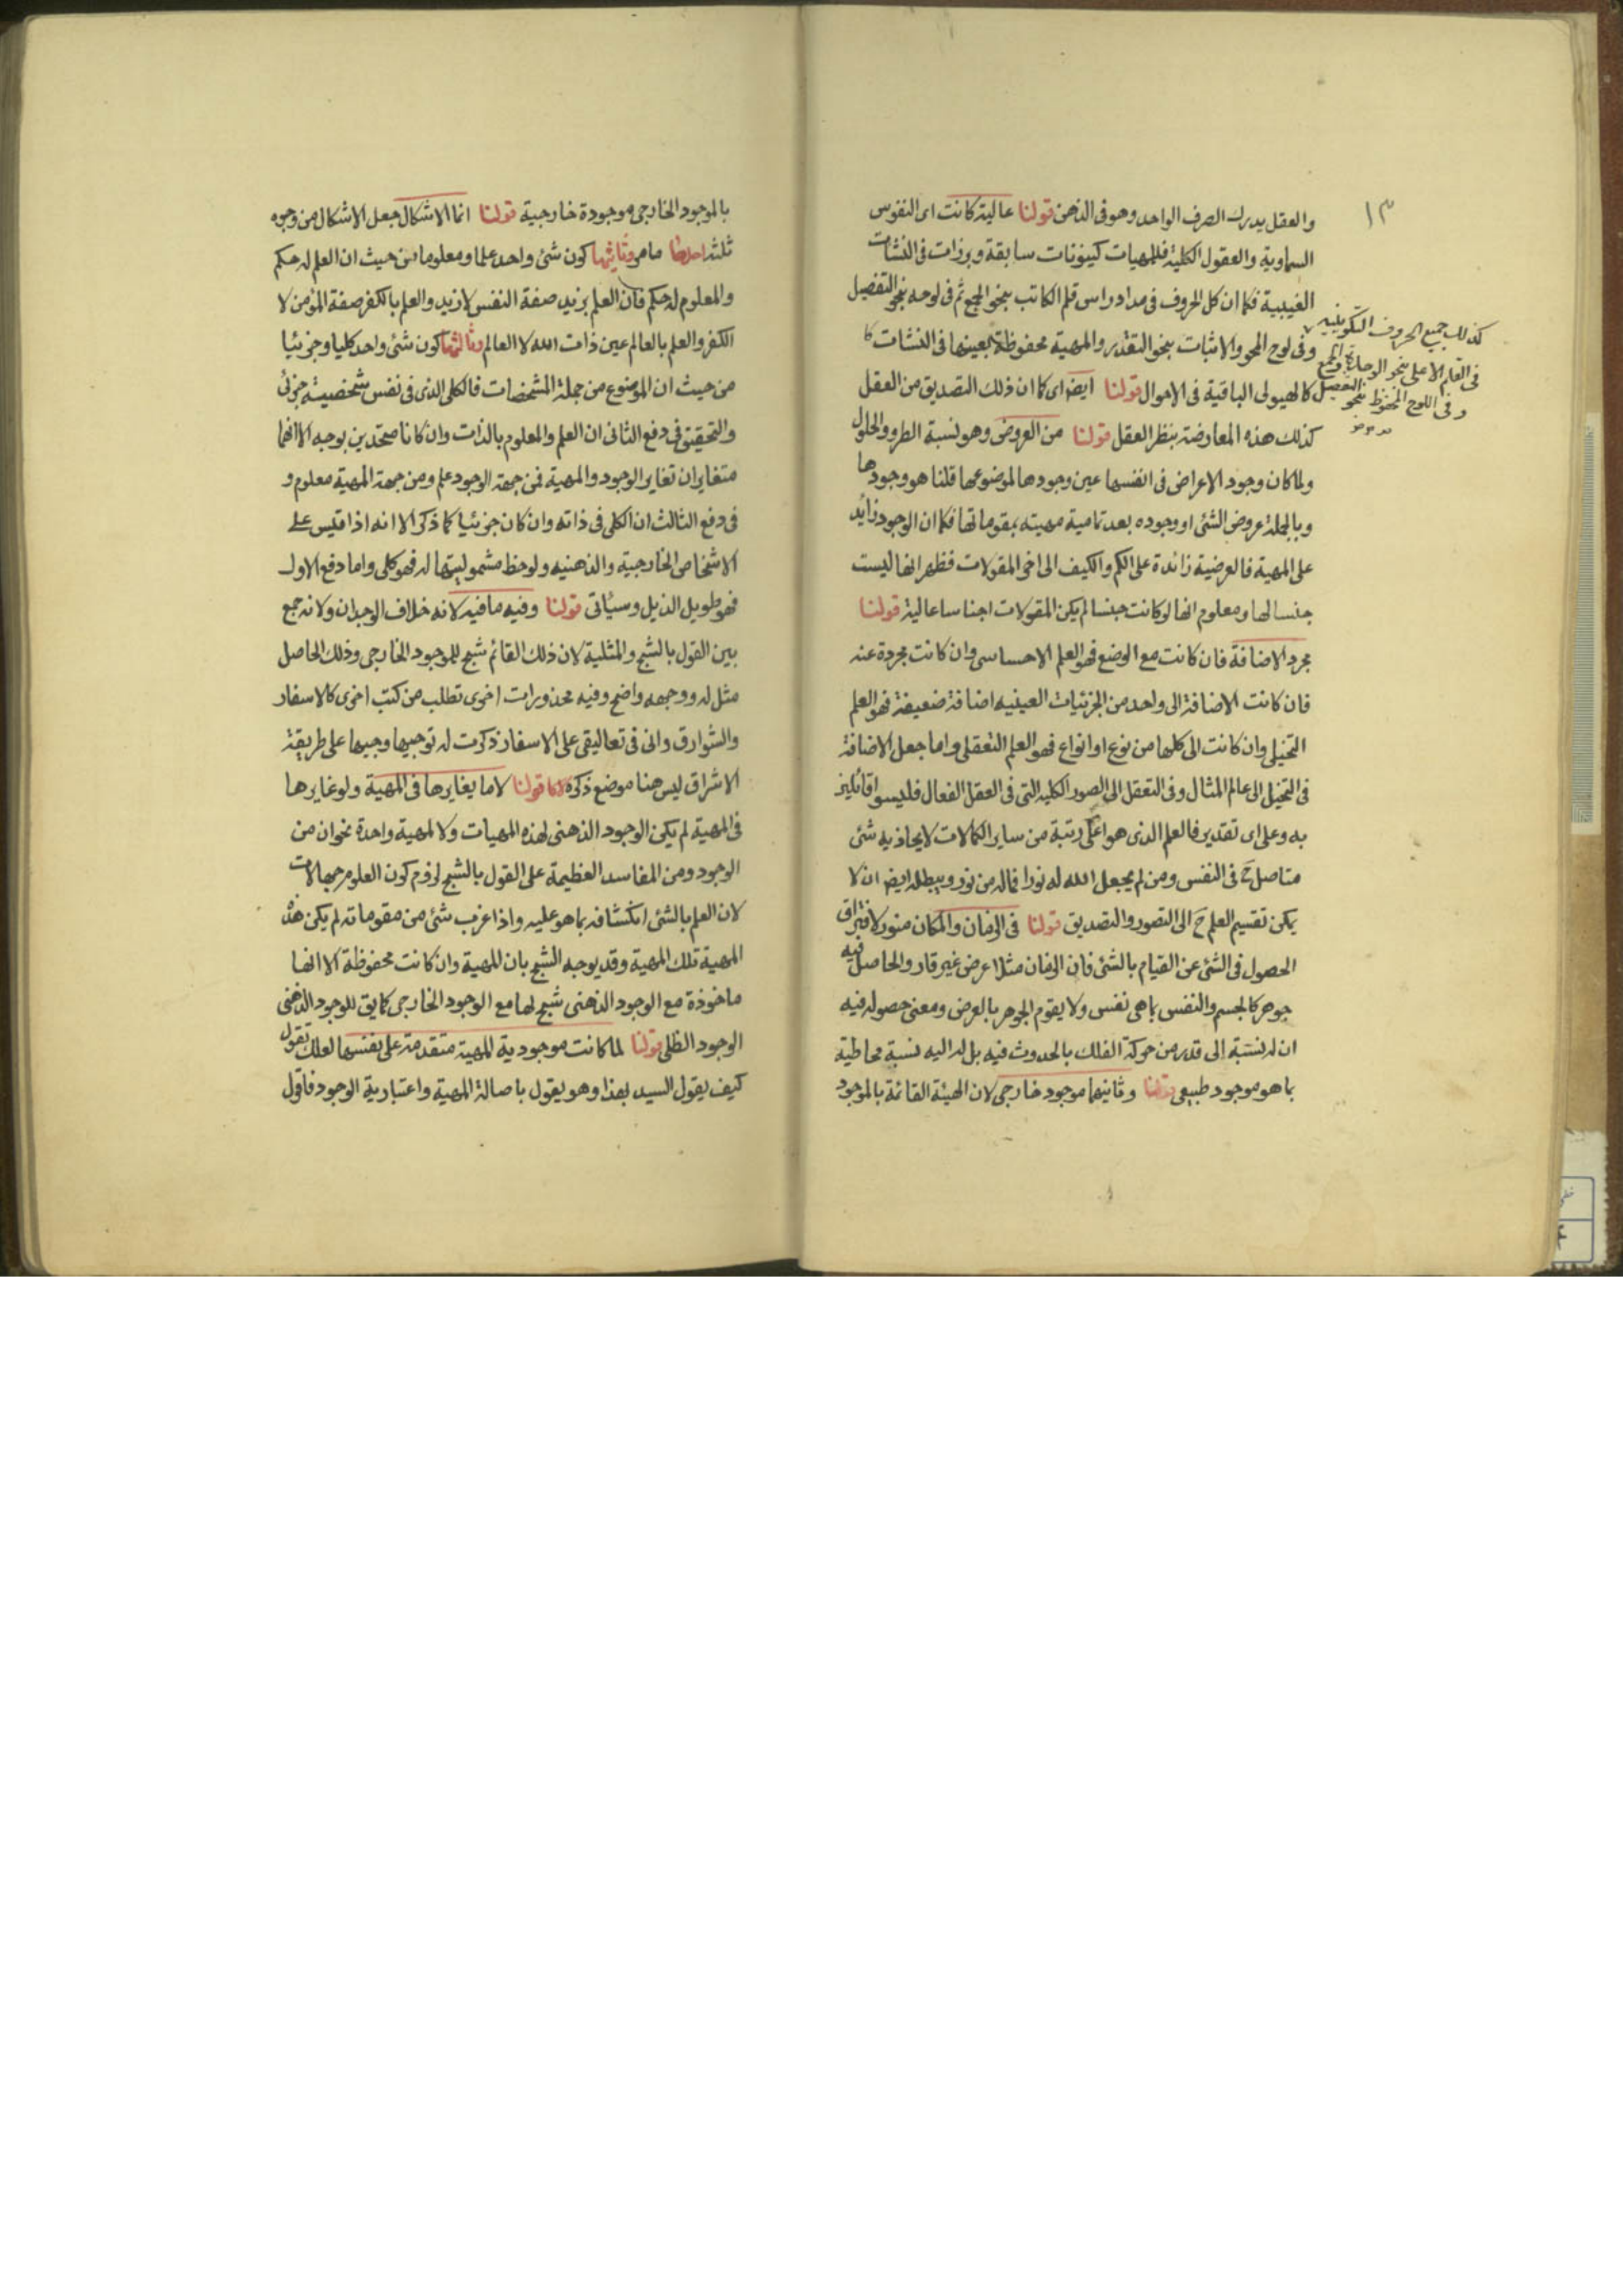 ١٣
والعقل يدرك الصرف الواحد وهو فى الذهن قولنا عالية كانت اى النفوس
السماوية والعقول الكلية فللمهيات كينونات سابقة وبرزات فى النشآت
الغيبية فكما ان كل الحروف فى مداد راس قلم الكاتب بنحو الجمع ثم فى لوحه بنحو التفصيل
كذلك جميع الحروف التكوينية
فى القلم الاعلى بنحو الوحدة والجمع
وفى اللوح المحفوظ بنحو التفصيل
وفى لوح المحو والاثبات بنحو التقدر والمهية محفوظة بعينها فى النشآت كا
كالهيولى الباقية فى الاحوال قولنا ايضا اى كما ان ذلك التصديق من العقل
كذلك هذه المعارضة بنظر العقل قولنا من العروض وهو نسبة الطرو والحلول
ولما كان وجود الاعراض فى انفسها عين وجودها لموضوعها قلنا هو وجودها
وبالجملة عروض الشئ او وجوده بعد تمامية مهيته بمقوماتها فكما ان الوجود زائد
على المهية فالعرضية زائدة على الكم والكيف الى اخر المقولات فظهر انها ليست
جنسا لها ومعلوم انها لو كانت جنسا لم يكن المقولات اجناسا عالية قولنا
مجرد الاضافة فان كانت مع الوضع فهو العلم الاحساسى وان كانت مجردة عنه
فان كانت الاضافة الى واحد من الجزئيات العينيه اضافة ضعيفة فهو العلم
التخيلى وان كانت الى كلها من نوع او انواع فهو العلم التعقلى واما جعل الاضافة
فى التخيل الى عالم المثال وفى التعقل الى الصور الكليه التى فى العقل الفعال فليسوا قائلين
به وعلى اى تقدير فالعلم الذى هو اعلى رتبة من ساير الكمالات لا يحاذيه شئ
متاصل ح فى النفس ومن لم يجعل الله له نورا فماله من نور ويبطله ايض ان لا
يمكن تقسيم العلم ح الى التصور والتصديق قولنا فى الزمان والمكان منور لافتراق
الحصول فى الشئ عن القيام بالشئ فان الزمان مثلا عرض غير قار والحاصل فيه
جوهر كالجسم والنفس بما هى نفس ولا يقوم الجوهر بالعرض ومعنى حصوله فيه
ان له نسبة الى قدر من حركة الفلك بالحدوث فيه بل له اليه نسبة محاطية
بما هو موجود طبيعى قولنا وثانيهما موجود خارجى لان الهيئة القائمة بالموجود
بالموجود الخارجى موجودة خارجية قولنا انما الاشكال جعل الاشكال من وجوه
ثلثة احدها ما مر وثانيها كون شئ واحد علما ومعلوما من حيث ان العلم له حكم
والمعلوم له حكم فان العلم بزيد صفة النفس لا زيد والعلم بالكفر صفة المؤمن لا
الكفر والعلم بالعالم عين ذات الله لا العالم وثالثها كون شئ واحد كليا وجزئيا
من حيث ان الموضوع من جملة المشخصات فالكلى الذى فى نفس شخصية جزئى
والتحقيق فى دفع الثانى ان العلم والمعلوم بالذات وان كانا متحدين بوجه الا انهما
متغايران تغاير الوجود والمهية فمن جهة الوجود علم ومن جهة المهية معلوم و
فى دفع الثالث ان الكلى فى ذاته وان كان جزئيا كما ذكر الا انه اذا قيس على
الاشخاص الخارجية والذهنيه ولوحظ مشموليتها له فهو كلى واما دفع الاول
فهو طويل الذيل وسيأتى قولنا وفيه ما فيه لانه خلاف الوجدان ولانه جمع
بين القول بالشبح والمثلية لان ذلك القائم شبح للموجود الخارجى وذلك الحاصل
مثل له ووجهه واضح وفيه محذورات اخرى تطلب من كتب اخرى كالاسفار
والشوارق وانى فى تعاليقى على الاسفار ذكرت له توجيها وجيها على طريقة
الاشراق ليس هنا موضع ذكره قولنا لا ما يغايرها فى المهية ولو غايرها
فى المهية لم يكن الوجود الذهنى لهذه المهيات ولا لمهية واحدة نحوان من
الوجود ومن المفاسد العظيمة على القول بالشبح لزوم كون العلوم جهالات
لان العلم بالشئ انكشافه بما هو عليه واذا عزب شئ من مقوماته لم يكن هذه
المهية تلك المهية وقد يوجه الشبح بان المهية وان كانت محفوظة الا انها
ماخوذة مع الوجود الذهنى شبح لها مع الوجود الخارجى كما يق للوجود الذهنى
الوجود الظلى قولنا لما كانت موجودية المهية متقدمة على نفسها لعلك تقول
كيف يقول السيد بهذا وهو يقول باصالة المهية واعتبارية الوجود فاقول